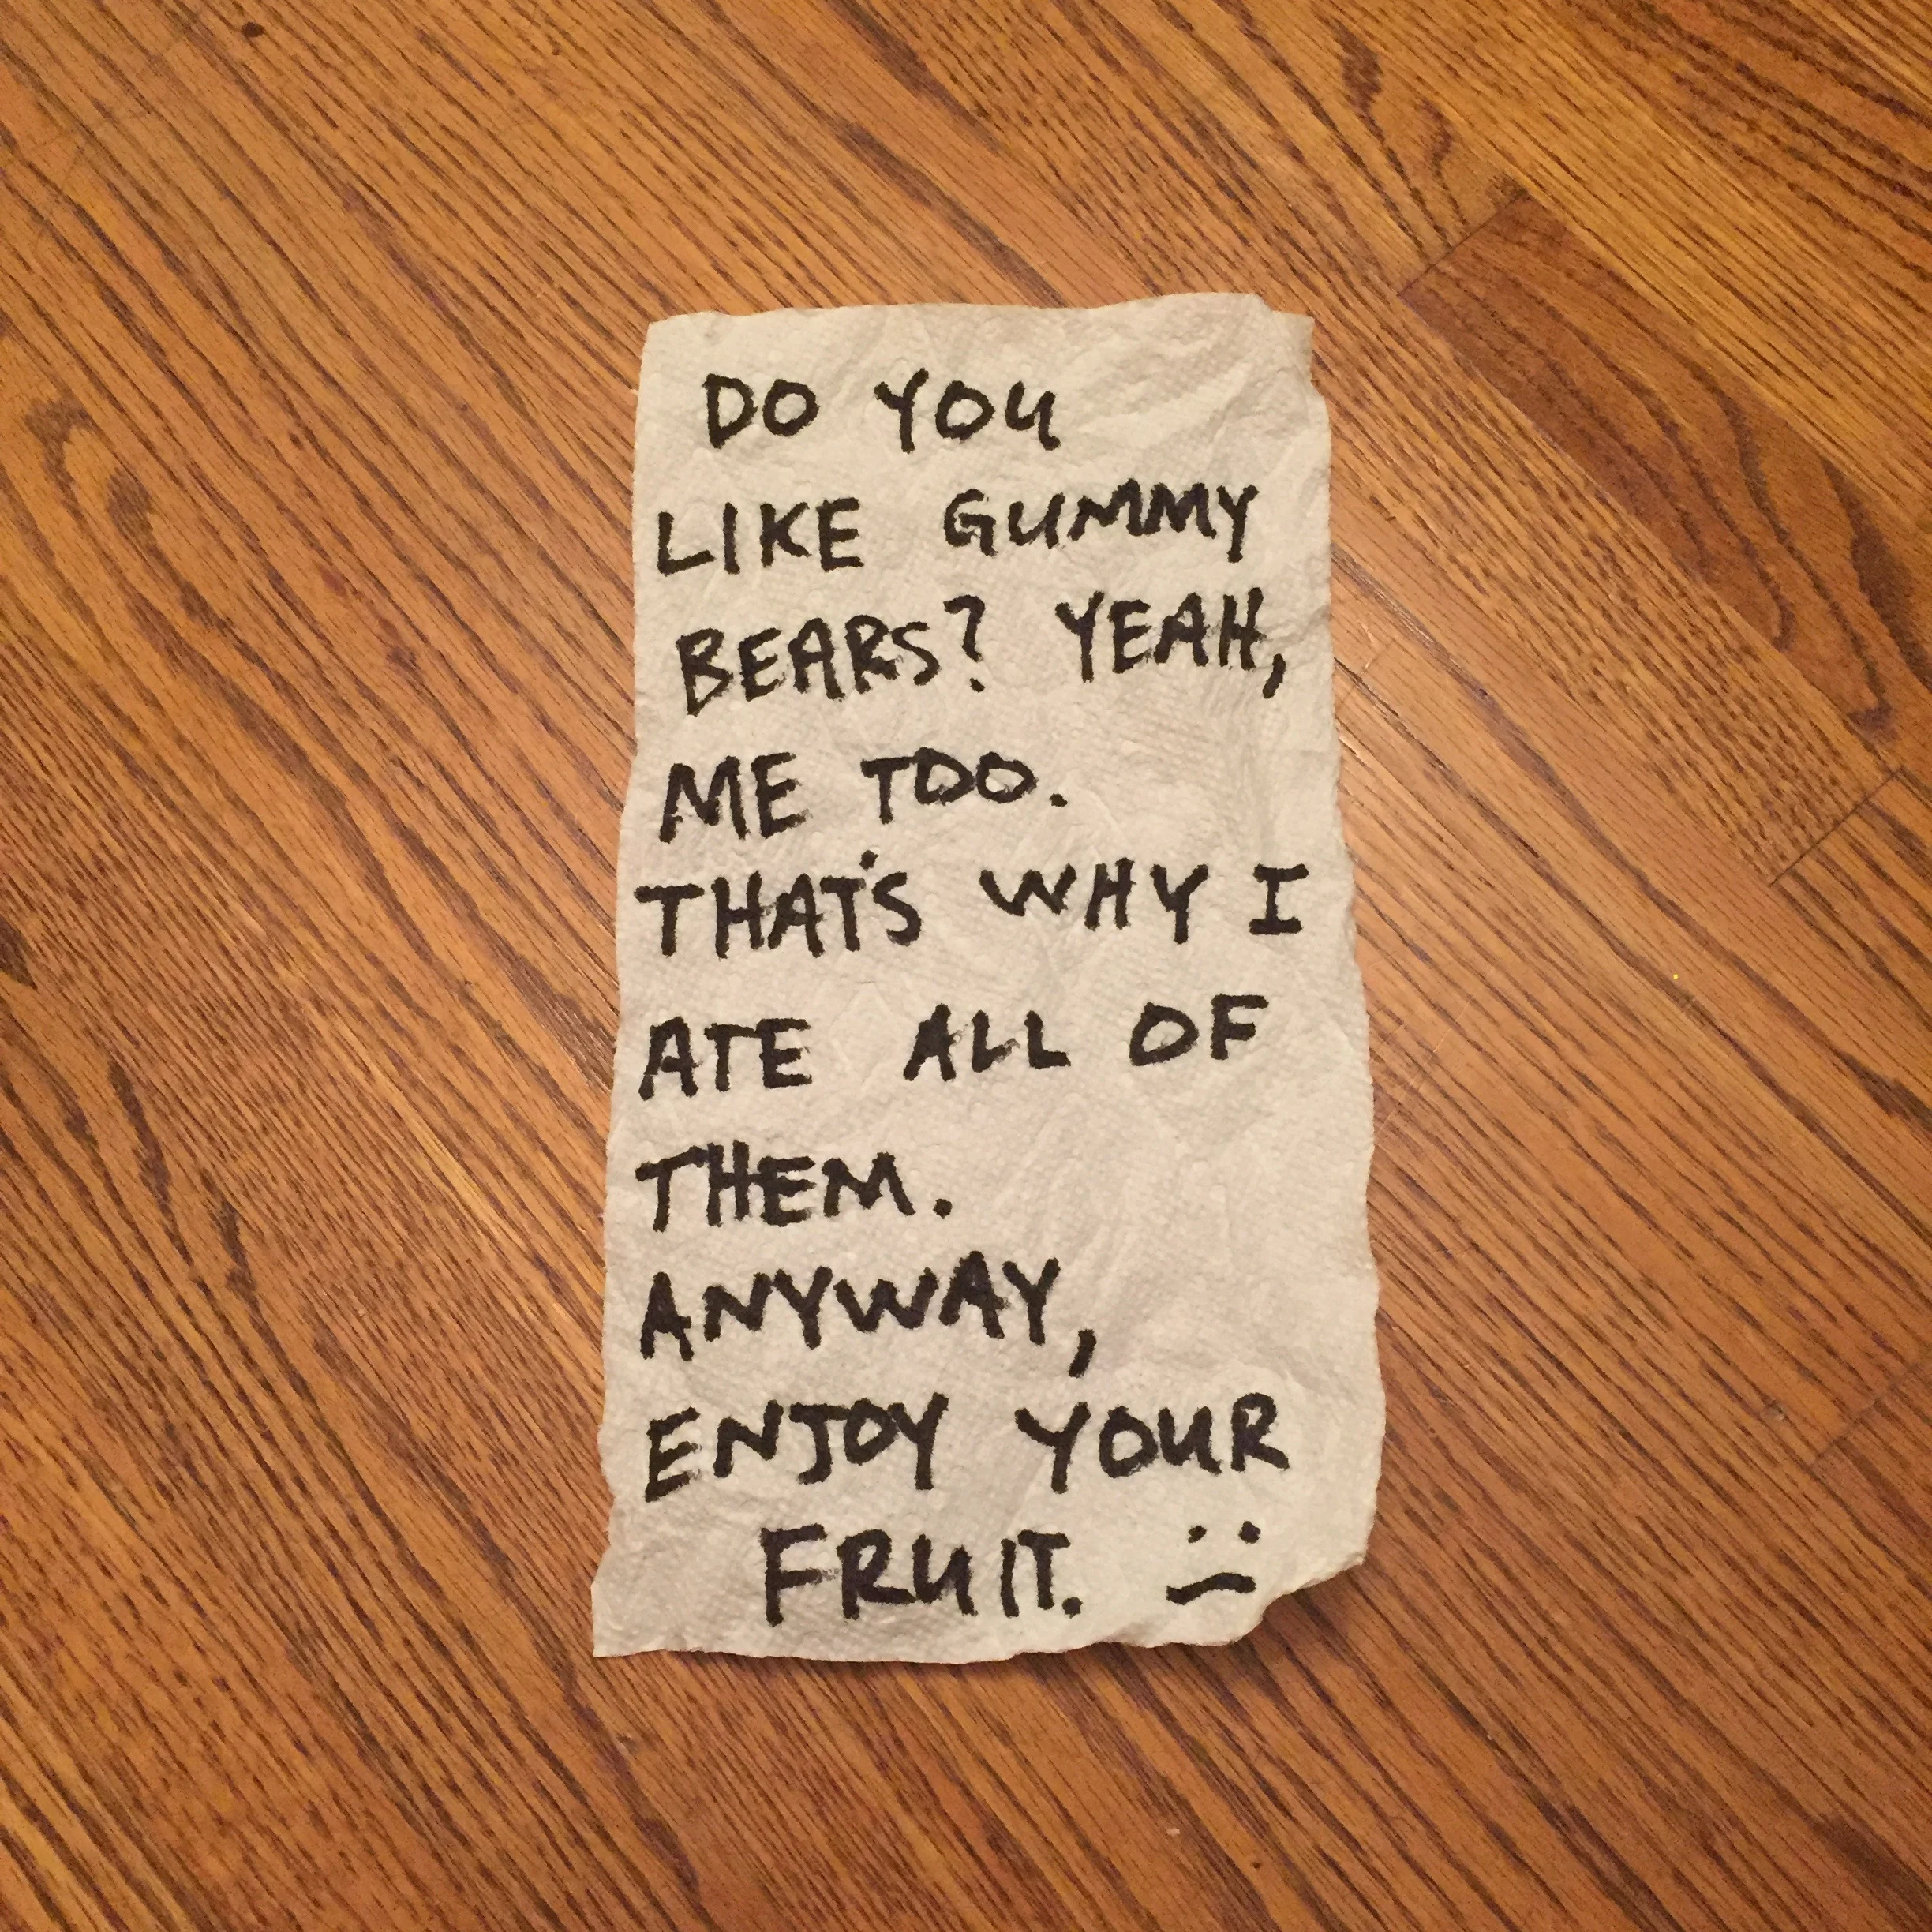 DO YOU
LIKE GUMMY
BEARS? YEAH,
ME TOO.
THAT'S WHY I
ATE ALL OF
THEM.
ANYWAY,
ENJOY YOUR
FRUIT.